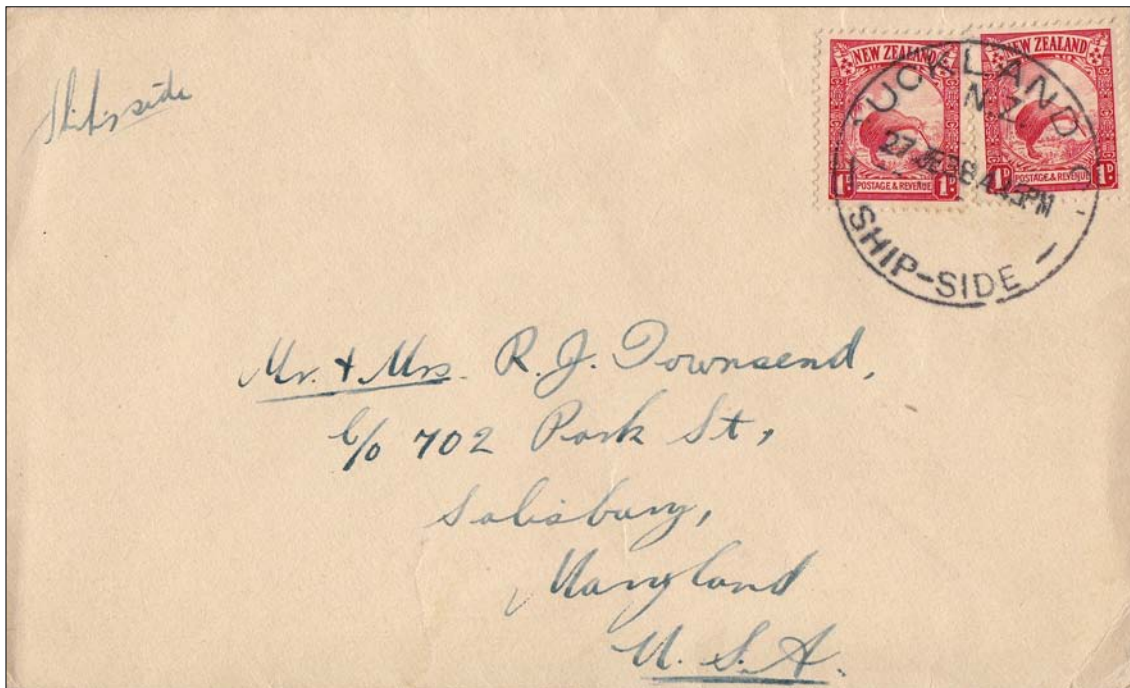 Ship side
NEW ZEALAND
1D POSTAGE & REVENUE 1D
NEW ZEALAND
1D POSTAGE & REVENUE 1D
AUCKLAND
N.Z.
27 JE 38 4.45 PM
SHIP-SIDE
Mr. & Mrs. R. J. Townsend,
c/o 702 Park St,
Salisbury,
Maryland
U. S. A.